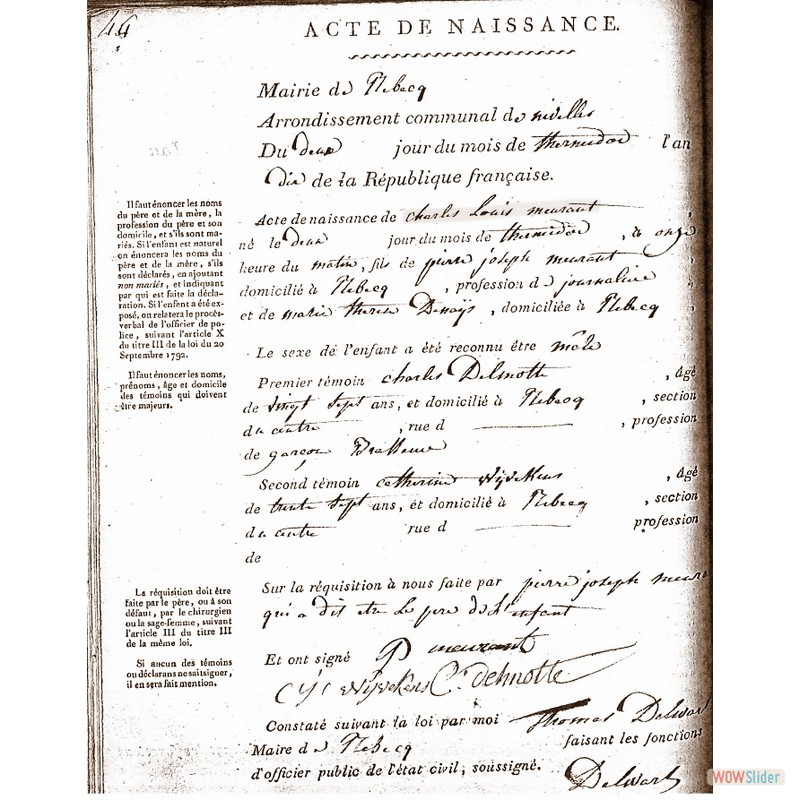 44
ACTE DE NAISSANCE.
Mairie de Rebecq
Arrondissement communal de nivelles
Du deux jour du mois de thermidor l'an
dix de la République française.
Il faut énoncer les noms
du père et de la mère, la
profession du père et son
domicile, et s'ils sont ma-
riés. Si l'enfant est naturel
on énoncera les noms du
père et de la mère, s'ils
sont déclarés, en ajoutant
non mariés, et indiquant
par qui est faite la décla-
ration. Si l'enfant a été ex-
posé, on relatera le procès-
verbal de l'officier de po-
lice, suivant l'article X
du titre III de la loi du 20
Septembre 1792.
Il faut énoncer les noms,
prénoms, âge et domicile
des témoins qui doivent
être majeurs.
Acte de naissance de charles Louis meurant
né le deux jour du mois de thermidor, à onze
heure du matin, fils de pierre joseph meurant
domicilié à Rebecq, profession de journalier
et de marie therese Denays, domiciliée à Rebecq
Le sexe de l'enfant a été reconnu être mâle
Premier témoin charles Delmotte, âgé
de vingt sept ans, et domicilié à Rebecq, section
du centre, rue d, profession
de garcon Brasseur
Second témoin catherine Wyvekens, âgé
de trente sept ans, et domicilié à Rebecq, section
du centre rue d profession
de
La réquisition doit être
faite par le père, ou à son
défaut, par le chirurgien
ou la sage-femme, suivant
l'article III du titre III
de la même loi.
Si aucun des témoins
ou déclarans ne sait signer,
il en sera fait mention.
Sur la réquisition à nous faite par pierre joseph meura
qui a dit etre Le pere de L'enfant
Et ont signé P meurant
Wyvekens C. delmotte
Constaté suivant la loi par moi Thomas Delwart
Maire de Rebecq faisant les fonctions
d'officier public de l'état civil, soussigné.
Delwart
WOWSlider